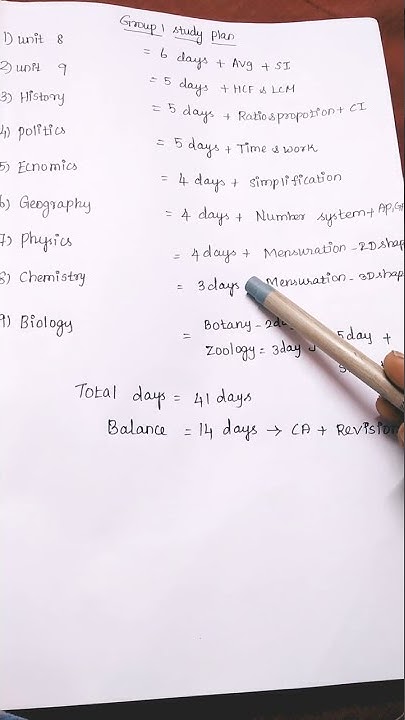 Group 1 study plan
1) unit 8 = 6 days + Avg + SI
2) unit 9 = 5 days + HCF & LCM
3) History = 5 days + Ratio & propotion + CI
4) politics = 5 days + Time & work
5) Ecnomics = 4 days + Simplification
6) Geography = 4 days + Number system + AP, G
7) Physics = 4 days + Mensuration - 2D shap
8) Chemistry = 3 days Mensuration - 3D shap
9) Biology = Botany - 2da 5 day +
Zoology = 3 day
Total days = 41 days
Balance = 14 days → CA + Revision